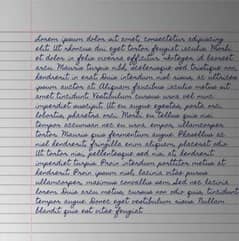 lorem ipsum dolor sit amet, consectetur adipiscing
elit. Ut rhoncus dui eget tortor feugiat iaculis. Morbi
et dolor in felis viverra efficitur. Integer id laoreet
arcu. Mauris turpis nibh, scelerisque sed tristique non,
hendrerit in erat. Duis interdum nisl risus, ac ultricies
ipsum auctor at. Aliquam faucibus iaculis metus sit
amet tincidunt. Vestibulum cursus urna vel nunc
imperdiet suscipit. Ut eu augue egestas, porta arcu
lobortis, pharetra orci. Morbi eu tellus quis nisi
tempor accumsan nec eu urna.
tortor. Mauris quis fermentum augue. Phasellus ac
nisl hendrerit, fringilla enim aliquam, placerat odio.
Ut tortor nisi, pellentesque sed nisi at, hendrerit
imperdiet turpis. Proin interdum porttitor metus at
hendrerit. Proin ipsum nibh, lacinia vitae purus
ullamcorper, maximus convallis sem. Sed nec lacinia
lorem. Duis arcu metus, cursus non odio quis, tincidunt
tempor augue. Donec eget vestibulum risus. Nullam
blandit quis est vitae feugiat